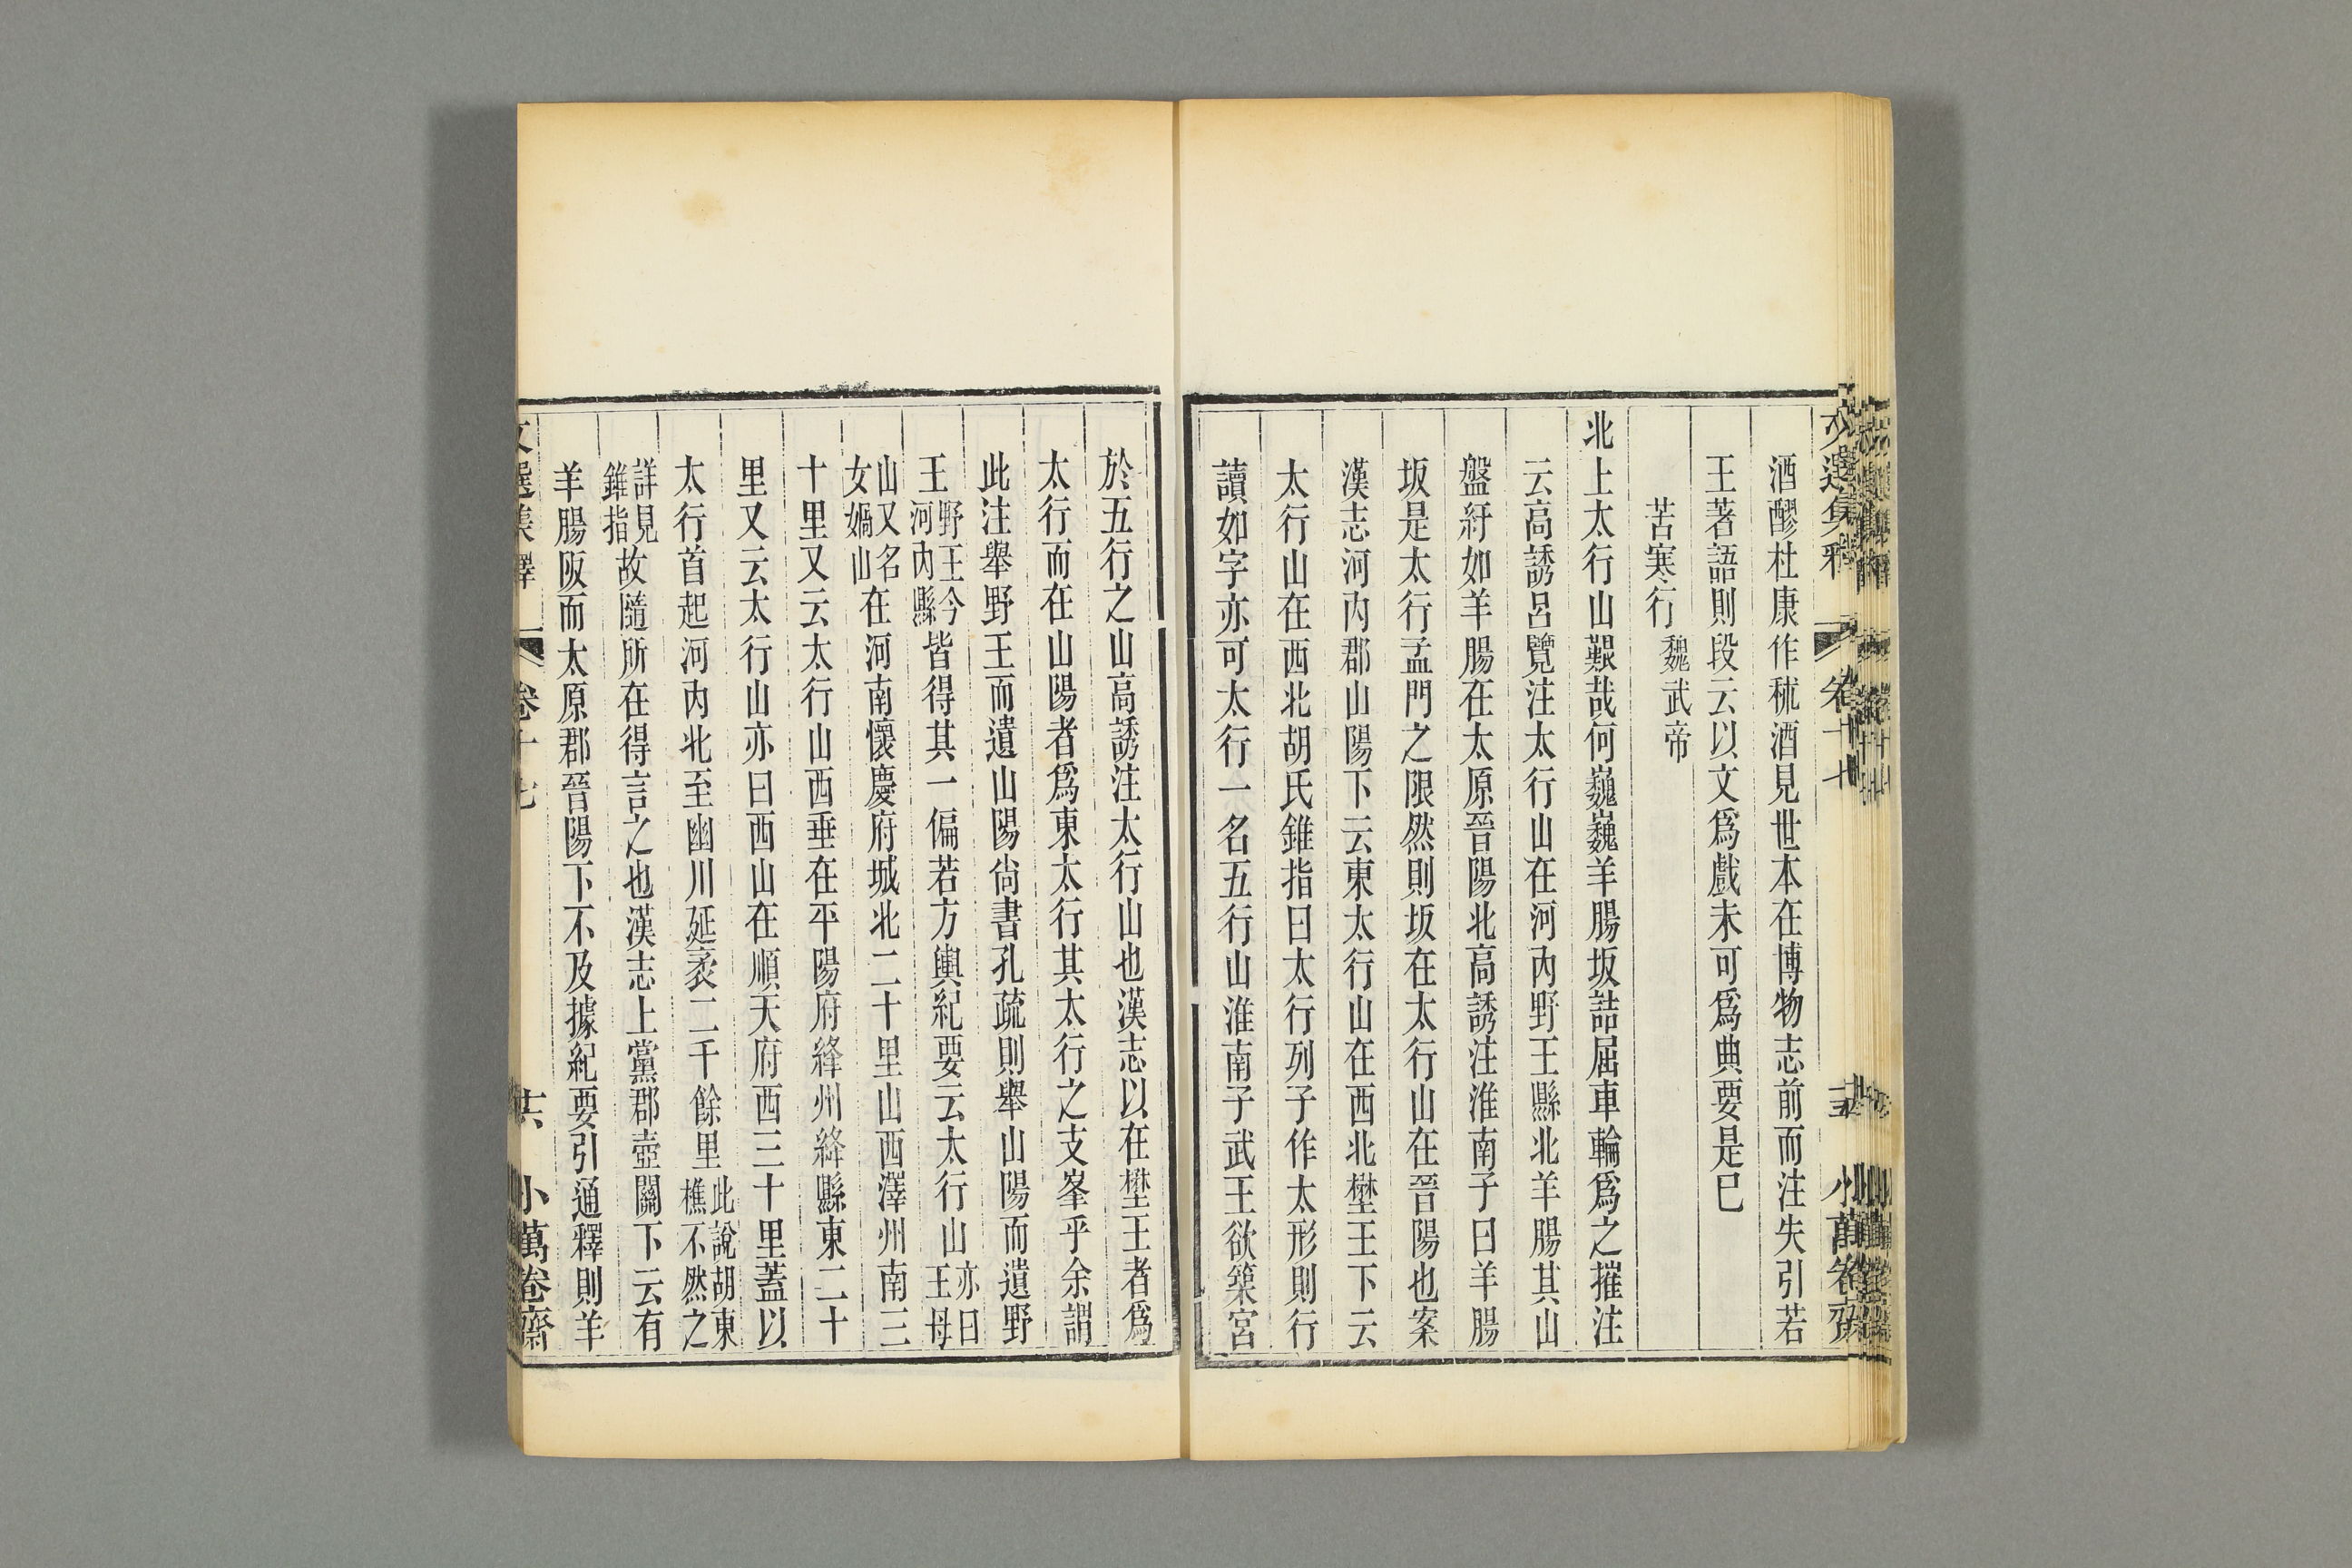 酒醪杜康作秫酒見世本在博物志前而注失引若
王著語則段云以文爲戲未可爲典要是巳
苦寒行 魏武帝
北上太行山艱哉何巍巍羊腸坂詰屈車輪爲之摧注
云高誘呂覽注太行山在河內野王縣北羊腸其山
盤紆如羊腸在太原晉陽北高誘注淮南子曰羊腸
坂是太行孟門之限然則坂在太行山在晉陽也案
漢志河內郡山陽下云東太行山在西北壄王下云
太行山在西北胡氏錐指曰太行列子作太形則行
讀如字亦可太行一名五行山淮南子武王欲築宮
於五行之山高誘注太行山也漢志以在壄王者爲
太行而在山陽者爲東太行其太行之支峯乎余謂
此注舉野王而遺山陽尙書孔疏則舉山陽而遺野
王野王今河內縣皆得其一偏若方輿紀要云太行山亦曰王母
山又名女媧山在河南懷慶府城北二十里山西澤州南三
十里又云太行山西垂在平陽府絳州絳縣東二十
里又云太行山亦曰西山在順天府西三十里蓋以
太行首起河內北至幽川延袤二千餘里此說胡東樵不然之
詳見錐指故隨所在得言之也漢志上黨郡壺關下云有
羊腸阪而太原郡晉陽下不及據紀要引通釋則羊
文選集釋 卷十七 廿六 小萬卷齋